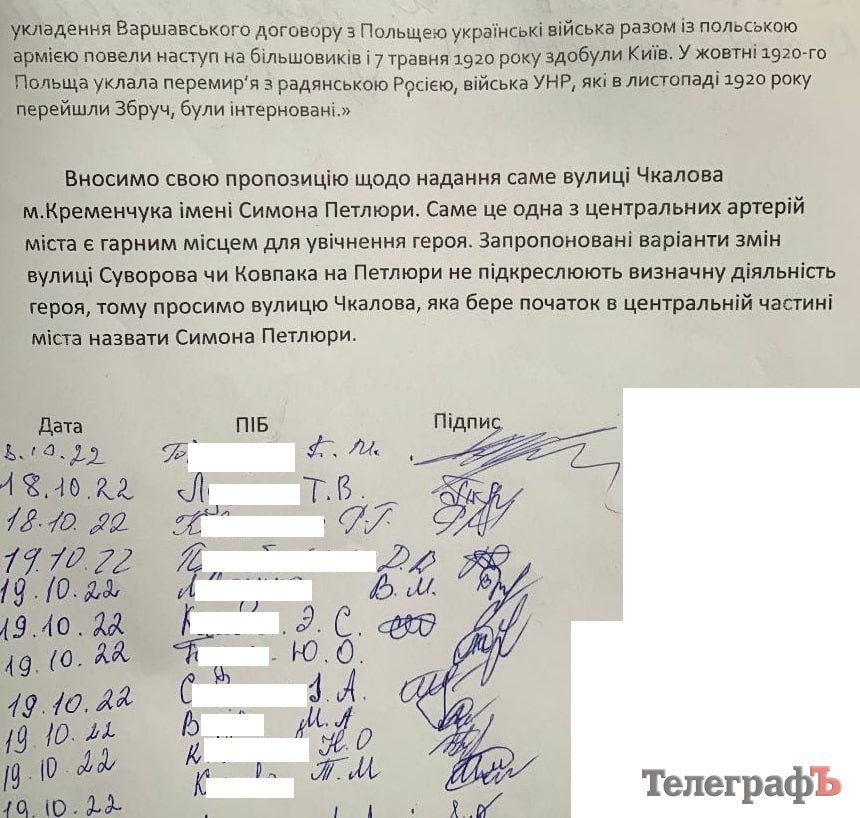 укладення Варшавського договору з Польщею українські війська разом із польською
армією повели наступ на більшовиків і 7 травня 1920 року здобули Київ. У жовтні 1920-го
Польща уклала перемир'я з радянською Росією, війська УНР, які в листопаді 1920 року
перейшли Збруч, були інтерновані.»
Вносимо свою пропозицію щодо надання саме вулиці Чкалова
м.Кременчука імені Симона Петлюри. Саме це одна з центральних артерій
міста є гарним місцем для увічнення героя. Запропоновані варіанти змін
вулиці Суворова чи Ковпака на Петлюри не підкреслюють визначну діяльність
героя, тому просимо вулицю Чкалова, яка бере початок в центральній частині
міста назвати Симона Петлюри.
Дата ПІБ Підпис
18.10.22 Т.В.
18.10.22
19.10.22 Д.В
19.10.22 В.М.
19.10.22 Э.С.
19.10.22 Ю.О.
19.10.22 І.А.
19.10.22 М.А
19.10.22 Н.О
19.10.22 Т.М
ТелеграфЪ